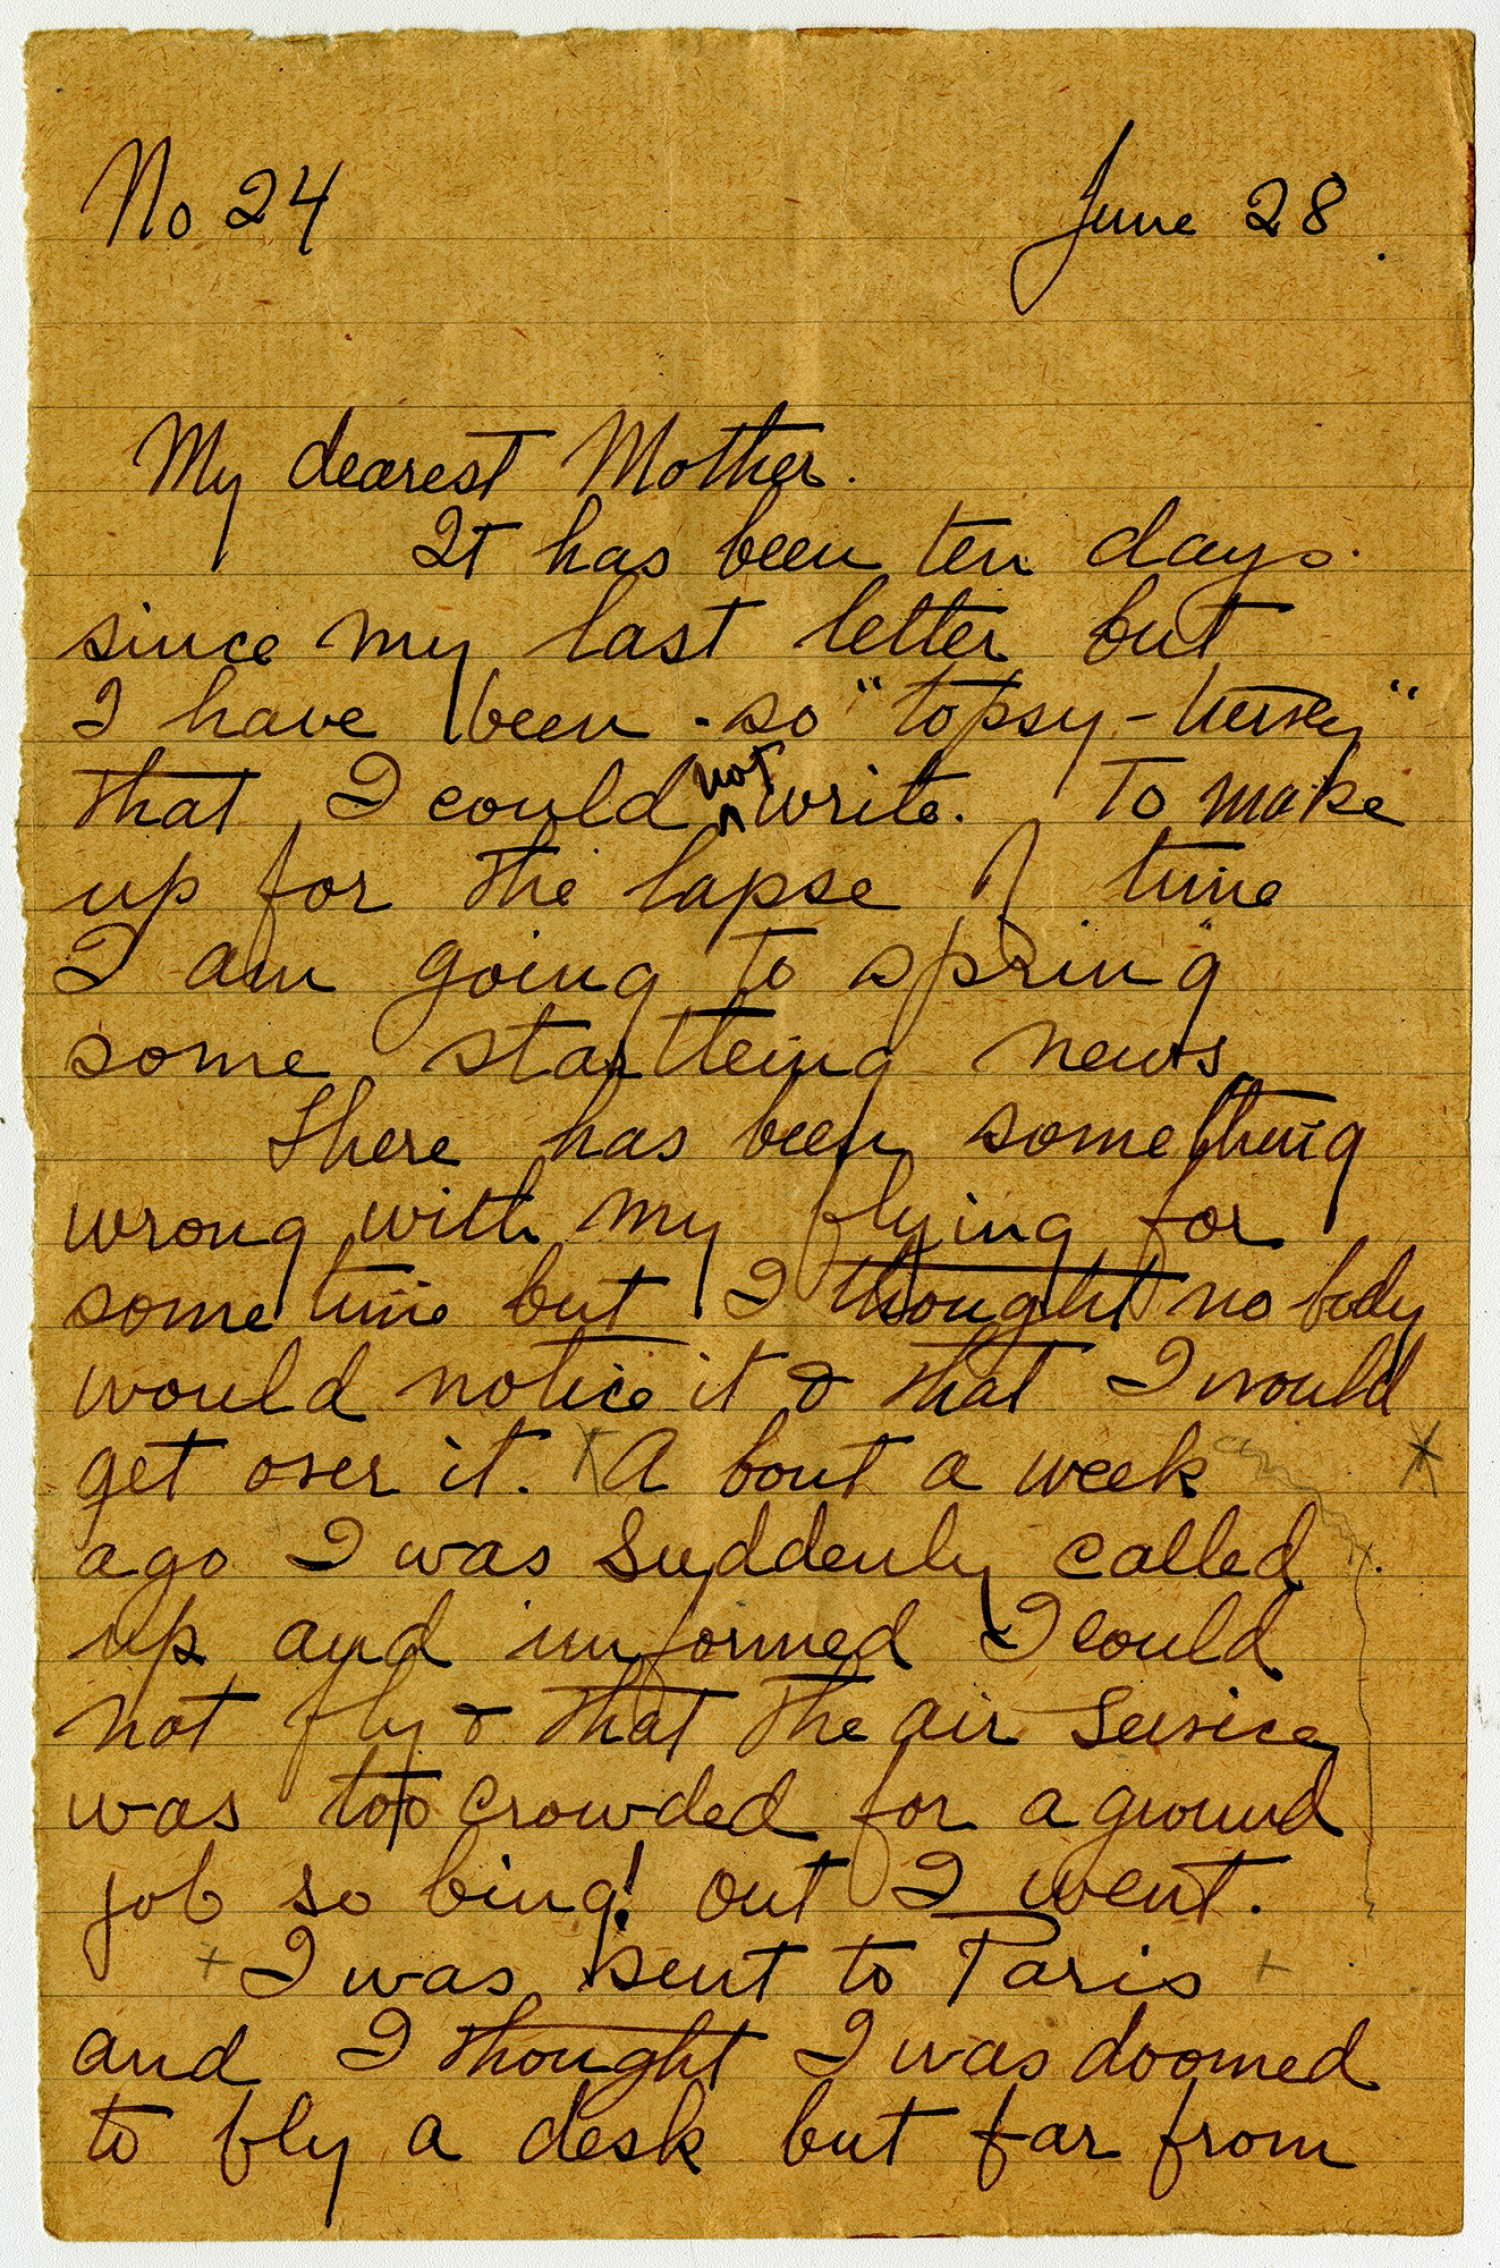 No 24 June 28.
My dearest Mother.
It has been ten days
since my last letter but
I have been so "topsy-turvey"
that I could not write. To make
up for the lapse of time
I am going to spring
some startleing news.
There has been something
wrong with my flying for
some time but I thought no body
would notice it & that I would
get over it. A bout a week
ago I was suddenly called
up and informed I could
not fly & that the air service
was too crowded for a ground
job so bing! out I went.
I was sent to Paris
and I thought I was doomed
to fly a desk but far from